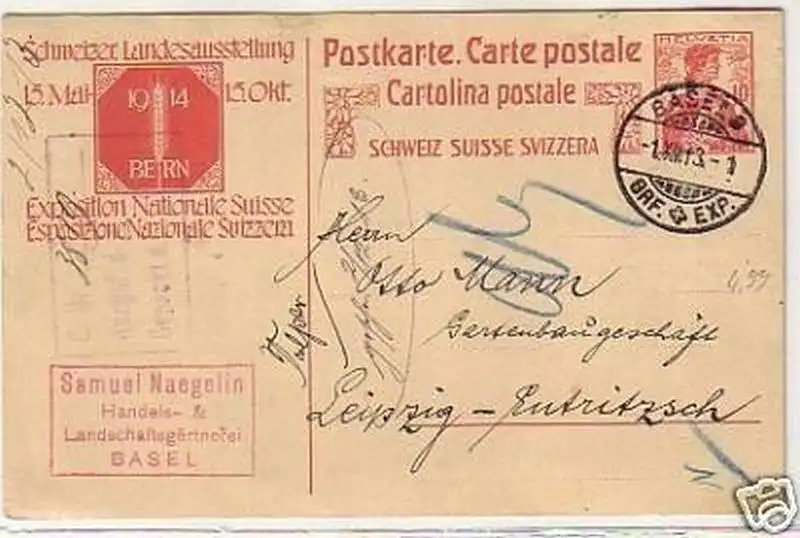 Schweizer Landesausstellung
15. Mai 15. Okt.
1914
BERN
Exposition Nationale Suisse
Esposizione Nazionale Svizzera
Postkarte. Carte postale
Cartolina postale
SCHWEIZ SUISSE SVIZZERA
HELVETIA
10
BASEL 2
-1.XII.13.- 1
BRF. EXP.
Herrn
Otto Mann
Gartenbaugeschäft
Leipzig - Eutritzsch
4,99
Samuel Naegelin
Handels- &
Landschaftsgärtnerei
BASEL